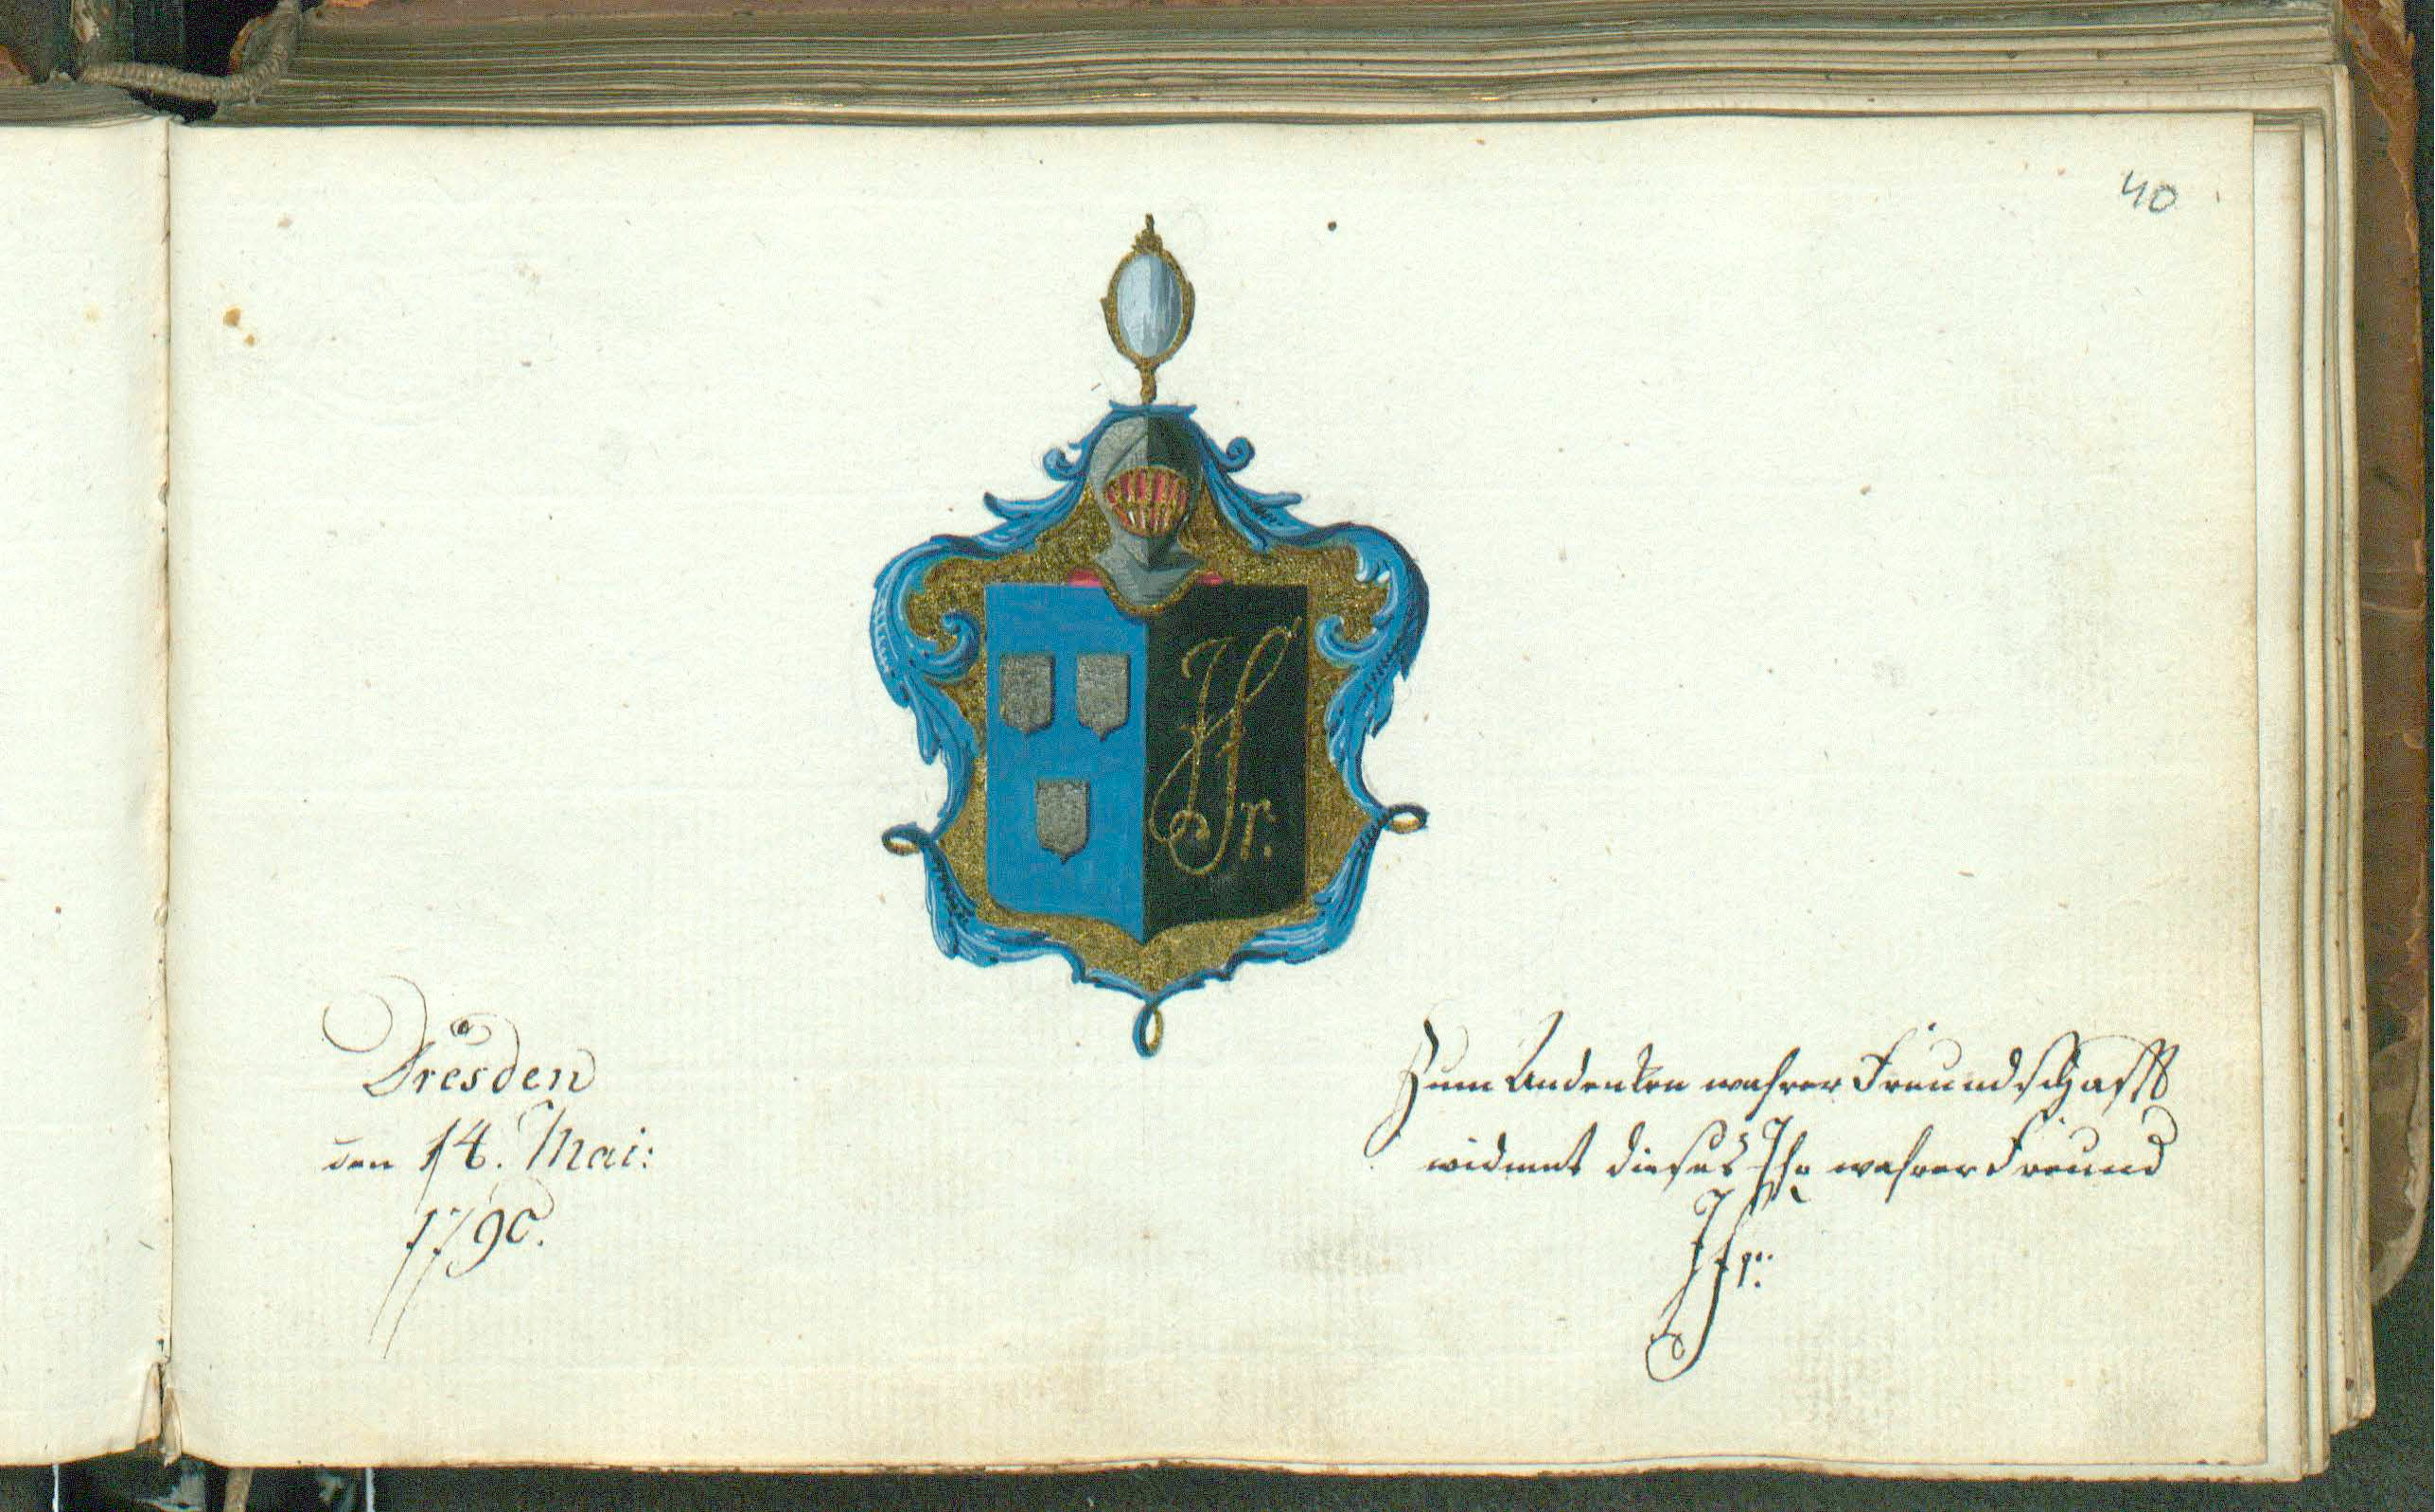 40
Hr.
Dresden
den 14. Mai:
1790.
Zum Andenken wahrer Freundschafft
widmet dieses Ihr wahrer Freund
Hr: